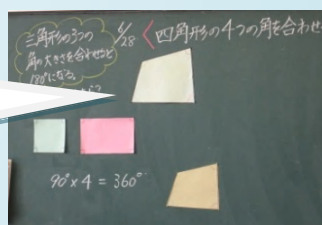 三角形の3つの
角の大きさを合わせると
180°になる。
6/28
四角形の4つの角を合わせ
90°×4=360°